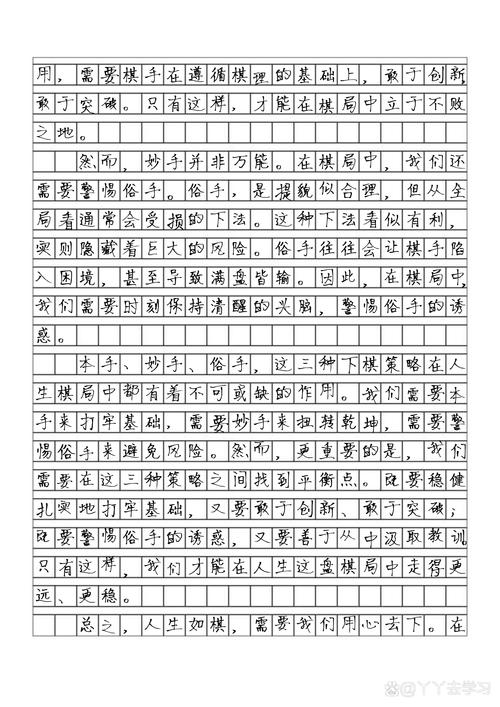 用，需要棋手在遵循棋理的基础上，敢于创新，
敢于突破。只有这样，才能在棋局中立于不败
之地。
然而，妙手并非万能。在棋局中，我们还
需要警惕俗手。俗手，是提貌似合理，但从全
局看通常会受损的下法。这种下法看似有利，
实则隐藏着巨大的风险。俗手往往会让棋手陷
入困境，甚至导致满盘皆输。因此，在棋局中，
我们需要时刻保持清醒的头脑，警惕俗手的诱
惑。
本手、妙手、俗手，这三种下棋策略在人
生棋局中都有着不可或缺的作用。我们需要本
手来打牢基础，需要妙手来扭转乾坤，需要警
惕俗手来避免风险。然而，更重要的是，我们
需要在这三种策略之间找到平衡点。既要稳健
扎实地打牢基础，又要敢于创新、敢于突破；
既要警惕俗手的诱惑，又要善于从中汲取教训。
只有这样，我们才能在人生这盘棋局中走得更
远、更稳。
总之，人生如棋，需要我们用心去下。在
@丫丫去学习